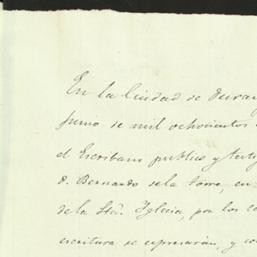 En la Ciudad de Duran
Junio de mil ochocientos
el Escribano publico y testig
D. Bernardo de la Torre, en
de la Sta. Yglecia, por los c
escritura se expresarán, y co